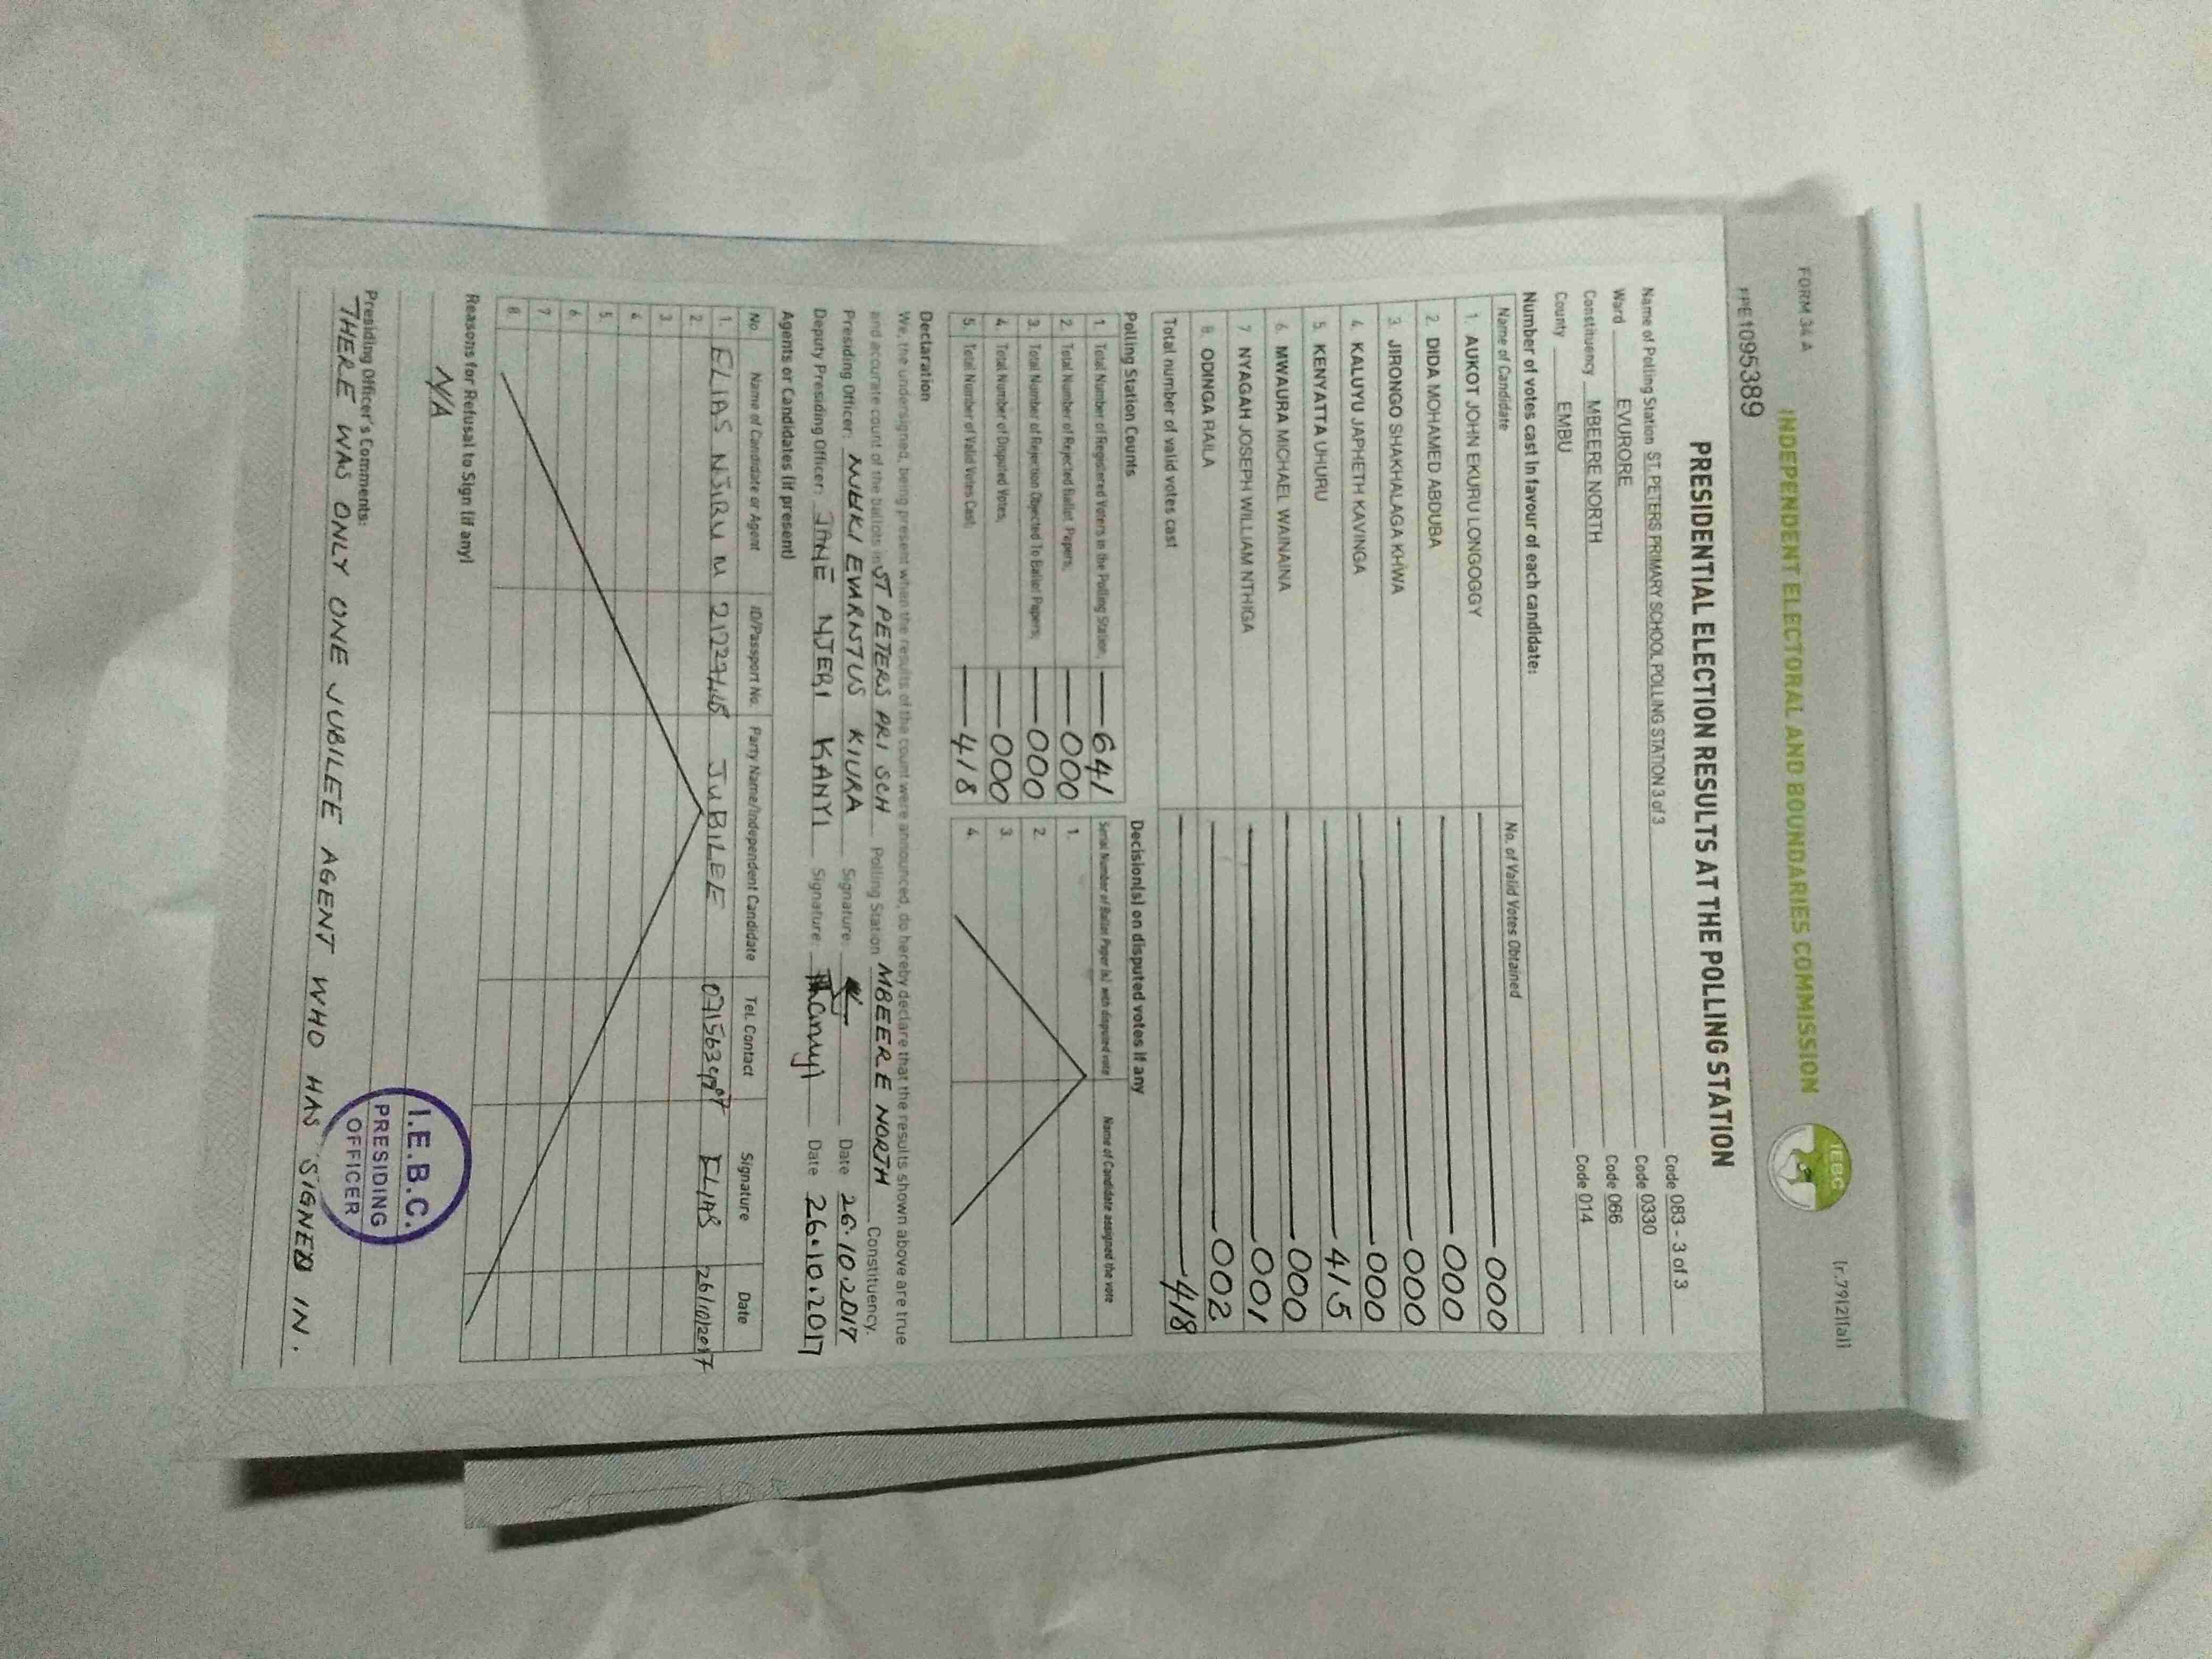 FORM 34 A
[r.79(2)(a)]
INDEPENDENT ELECTORAL AND BOUNDARIES COMMISSION
IEBC
PPE1095389
PRESIDENTIAL ELECTION RESULTS AT THE POLLING STATION
Name of Polling Station ST. PETERS PRIMARY SCHOOL POLLING STATION 3 of 3 Code 083 - 3 of 3
Ward EVURORE Code 0330
Constituency MBEERE NORTH Code 066
County EMBU Code 014
Number of votes cast in favour of each candidate:
Name of Candidate No. of Valid Votes Obtained
1. AUKOT JOHN EKURU LONGOGGY 000
2. DIDA MOHAMED ABDUBA 000
3. JIRONGO SHAKHALAGA KHWA 000
4. KALUYU JAPHETH KAVINGA 000
5. KENYATTA UHURU 415
6. MWAURA MICHAEL WAINAINA 000
7. NYAGAH JOSEPH WILLIAM NTHIGA 001
8. ODINGA RAILA 002
Total number of valid votes cast 418
Polling Station Counts Decision(s) on disputed votes if any
1. Total Number of Registered Voters in the Polling Station, 641 Serial Number of Ballot Paper (s) with disputed vote Name of Candidate assigned the vote
2. Total Number of Rejected Ballot Papers, 000 1.
3. Total Number of Rejection Objected To Ballot Papers, 000 2.
4. Total Number of Disputed Votes, 000 3.
5. Total Number of Valid Votes Cast, 418 4.
Declaration
We, the undersigned, being present when the results of the count were announced, do hereby declare that the results shown above are true
and accurate count of the ballots in ST PETERS PRI SCH Polling Station MBEERE NORTH Constituency.
Presiding Officer: EVARNTUS KIURA Signature: Date 26.10.2017
Deputy Presiding Officer: JANE NJERI KANYI Signature: Kanyi Date 26.10.2017
Agents or Candidates (if present)
No. Name of Candidate or Agent ID/Passport No. Party Name/Independent Candidate Tel. Contact Signature Date
1. ELIAS NJIRU N JUBILEE ELIAS 26/10/2017
2.
3.
4.
5.
6.
7.
8.
Reasons for Refusal to Sign (if any)
N/A
Presiding Officer's Comments:
THERE WAS ONLY ONE JUBILEE AGENT WHO HAS SIGNED IN.
I.E.B.C.
PRESIDING
OFFICER